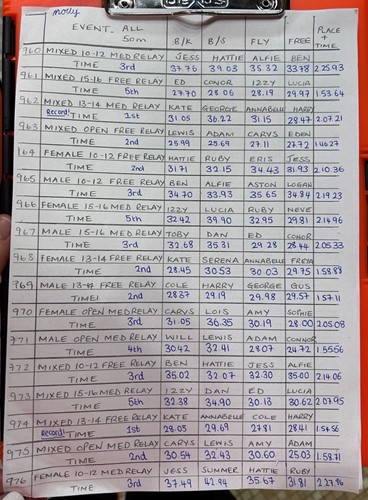 molly
EVENT ALL 50m B/K B/S FLY FREE PLACE + TIME
960 MIXED 10-12 MED RELAY JESS HATTIE ALFIE BEN
TIME 3rd 37.76 39.03 35.32 33.78 2.25.93
961 MIXED 15-16 FREE RELAY ED CONOR IZZY LUCIA
TIME 5th 27.70 28.06 28.19 29.97 1.53.64
962 MIXED 13-14 MED RELAY KATE GEORGE ANNABELLE HARRY
Record! TIME 1st 31.05 36.22 31.15 28.47 2.07.21
963 MIXED OPEN FREE RELAY LEWIS ADAM CARYS EDEN
TIME 2nd 25.99 25.69 27.11 27.72 1.46.27
164 FEMALE 10-12 FREE RELAY HATTIE RUBY ERIS JESS
TIME 2nd 31.71 32.15 34.43 31.93 2.10.36
965 MALE 10-12 FREE RELAY BEN ALFIE ASTON LOGAN
TIME 3rd 34.70 33.93 35.65 34.84 2.19.23
966 FEMALE 15-16 MED RELAY IZZY LUCIA RUBY NEVE
TIME 5th 32.42 39.90 32.95 29.81 2.14.96
967 MALE 15-16 MED RELAY TOBY DAN ED CONOR
TIME 3rd 32.68 35.31 29.28 28.44 2.05.33
968 FEMALE 13-14 FREE RELAY KATE SERENA ANNABELLE FREYA
TIME 2nd 28.45 30.53 30.03 29.75 1.58.89
969 MALE 13-14 FREE RELAY COLE HARRY GEORGE GUS
TIME 2nd 28.37 29.19 29.98 29.57 1.57.11
970 FEMALE OPEN MED RELAY CARYS LOIS AMY SOPHIE
TIME 3rd 31.05 36.35 30.19 28.00 2.05.08
971 MALE OPEN MED RELAY WILL LEWIS ADAM CONNOR
TIME 4th 30.42 32.41 28.07 24.72 1.55.56
972 MIXED 10-12 FREE RELAY BEN HATTIE JESS ALFIE
TIME 3rd 35.02 32.07 32.30 35.00 2.14.06
973 MIXED 15-16 MED RELAY IZZY DAN ED LUCIA
TIME 5th 32.38 34.90 30.13 30.62 2.07.95
974 MIXED 13-14 FREE RELAY KATE ANNABELLE COLE HARRY
Record! TIME 1st 28.05 29.69 27.81 28.41 1.54.56
975 MIXED OPEN MED RELAY CARYS LEWIS AMY ADAM
TIME 2nd 30.54 32.43 30.60 25.03 1.58.71
976 FEMALE 10-12 MED RELAY JESS SUMMER HATTIE RUBY
TIME 3rd 37.49 42.94 35.67 31.81 2.27.96